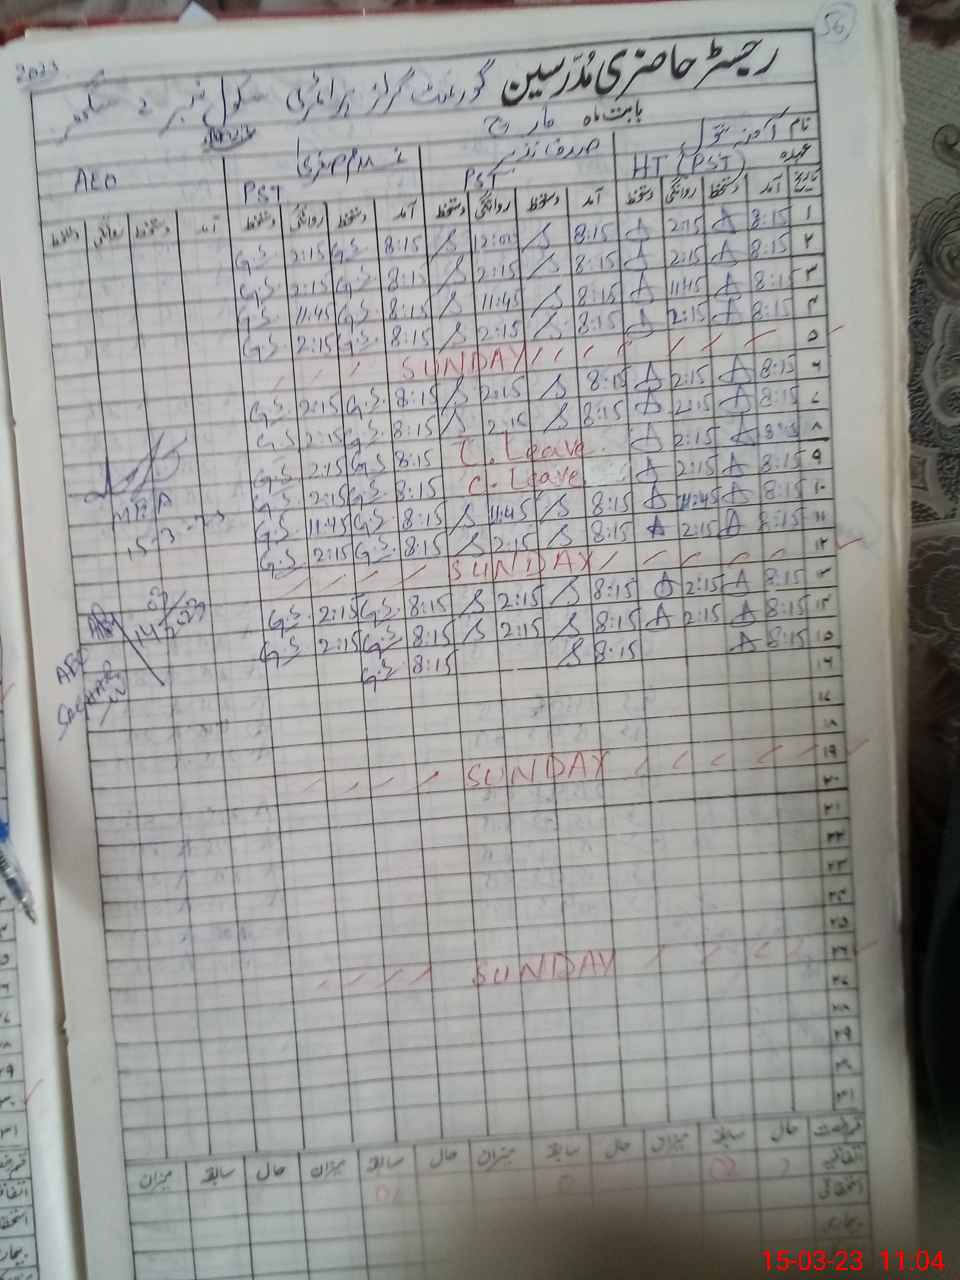 56
2023
رجسٹر حاضری مُدرّسین گورنمنٹ گرلز پرائمری سکول نمبر 2
بابت ماہ مارچ
نام
عہدہ HT (PST) PST PST AEO
تاریخ آمد دستخط روانگی دستخط آمد دستخط روانگی دستخط آمد دستخط روانگی دستخط آمد دستخط روانگی دستخط
۱ 8:15 A 2:15 A 8:15 S 12:00 S 8:15 G.S 2:15 G.S
۲ 8:15 A 2:15 A 8:15 S 2:15 S 8:15 G.S 2:15 G.S
۳ 8:15 A 11:45 A 8:15 S 11:45 S 8:15 G.S 11:45 G.S
۴ 8:15 A 2:15 A 8:15 S 2:15 S 8:15 G.S 2:15 G.S
۵ SUNDAY
۶ 8:15 A 2:15 A 8:15 S 2:15 S 8:15 G.S 2:15 G.S
۷ 8:15 A 2:15 A 8:15 S 2:15 S 8:15 G.S 2:15 G.S
۸ 8:15 A 2:15 A C. Leave 8:15 G.S 2:15 G.S
۹ 8:15 A 2:15 A C. Leave 8:15 G.S 2:15 G.S
۱۰ 8:15 A 11:45 A 8:15 S 11:45 S 8:15 G.S 11:45 G.S
۱۱ 8:15 A 2:15 A 8:15 S 2:15 S 8:15 G.S 2:15 G.S
۱۲ SUNDAY
۱۳ 8:15 A 2:15 A 8:15 S 2:15 S 8:15 G.S 2:15 G.S
۱۴ 8:15 A 2:15 A 8:15 S 2:15 S 8:15 G.S 2:15 G.S
۱۵ 8:15 A 8:15 S 8:15 G.S
MEA
15-3-23
14/03/2023
۱۶
۱۷
۱۸
۱۹ SUNDAY
۲۰
۲۱
۲۲
۲۳
۲۴
۲۵
۲۶ SUNDAY
۲۷
۲۸
۲۹
۳۰
۳۱
حال سابقہ میزان حال سابقہ میزان حال سابقہ میزان حال سابقہ میزان
اتفاقیہ
استحقاقی
بیماری
15-03-23 11:04